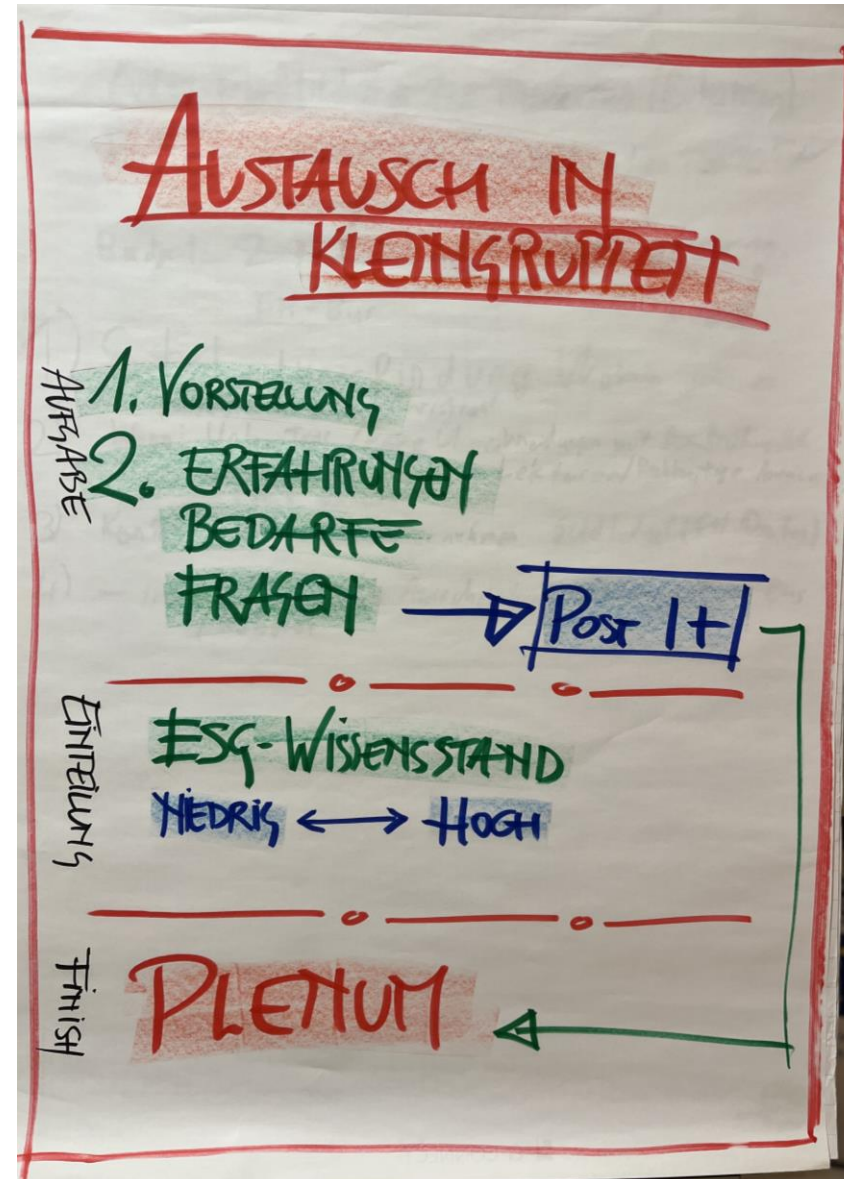 AUSTAUSCH IN
KLEINGRUPPEN
AUFGABE
1. VORSTELLUNG
2. ERFAHRUNGEN
BEDARFE
FRAGEN
POST IT
EINTEILUNG
ESG-WISSENSSTAND
NIEDRIG ↔ HOCH
FINISH
PLENUM